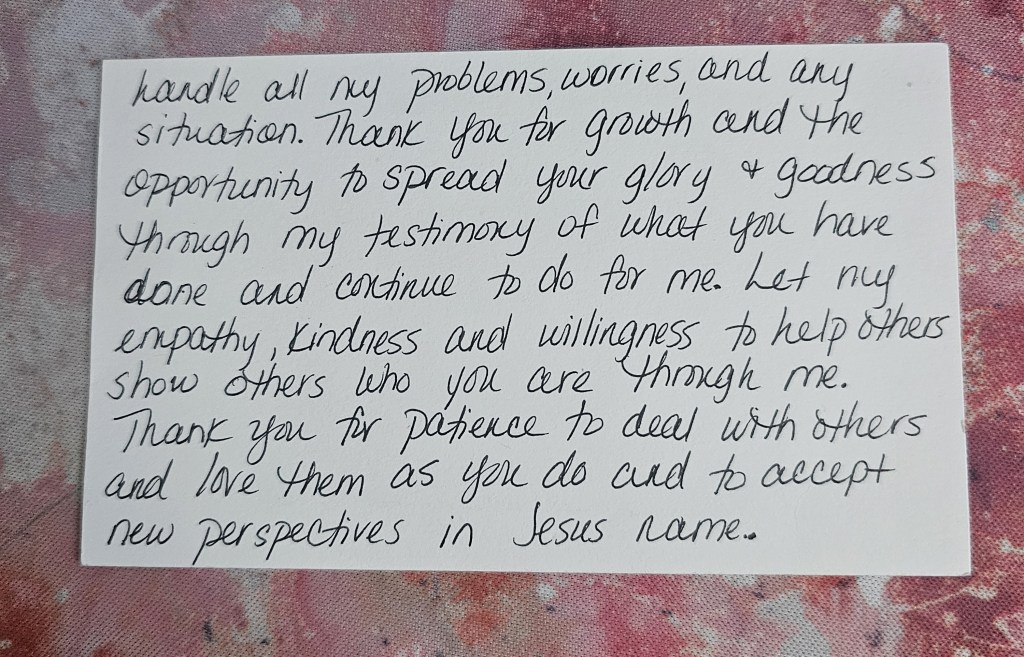 handle all my problems, worries, and any
situation. Thank you for growth and the
opportunity to spread your glory & goodness
through my testimony of what you have
done and continue to do for me. Let my
empathy, kindness and willingness to help others
show others who you are through me.
Thank you for patience to deal with others
and love them as you do and to accept
new perspectives in Jesus name..